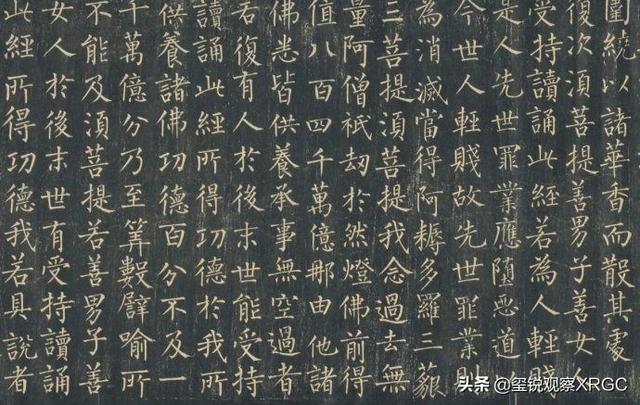 圍繞以諸華香而散其處
復次須菩提善男子善女人
受持讀誦此經若為人輕賤
是人先世罪業應墮惡道
今世人輕賤故先世罪業則
為消滅當得阿耨多羅三藐
三菩提須菩提我念過去無
量阿僧祇劫於然燈佛前得
值八百四千萬億那由他諸
佛悉皆供養承事無空過者
若復有人於後末世能受持
讀誦此經所得功德於我所
供養諸佛功德百分不及一
千萬億分乃至筭數譬喻所
不能及須菩提若善男子善
女人於後末世有受持讀誦
此經所得功德我若具說者
头条 @玺锐观察XRGC